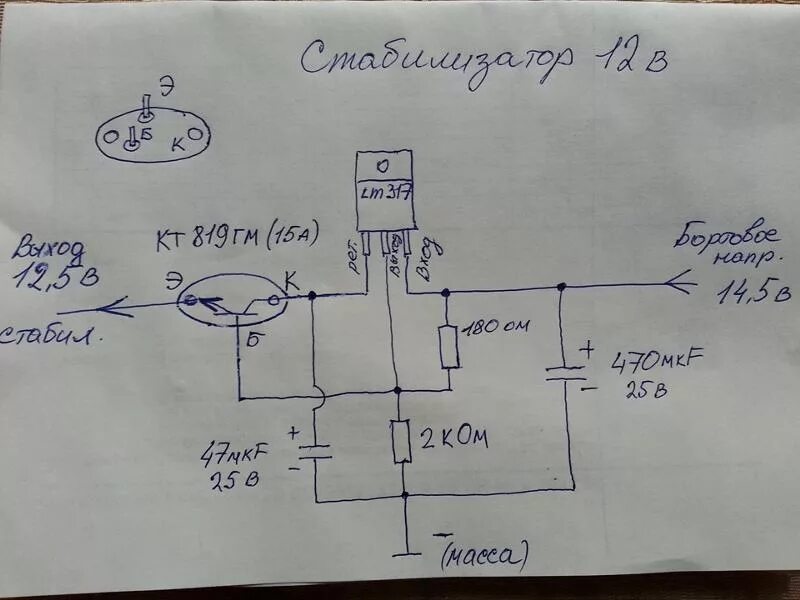 Стабилизатор 12 в
Э
Б
К
LM317
рег.
Выход
Вход
КТ 819 ГМ (15А)
Выход
12,5 в
стабил.
Э
К
Б
Бортовое
напр.
14,5 в
180 ом
+
470 мкF
-
25 в
2 КОм
+
47 мкF
-
25 в
-
(масса)